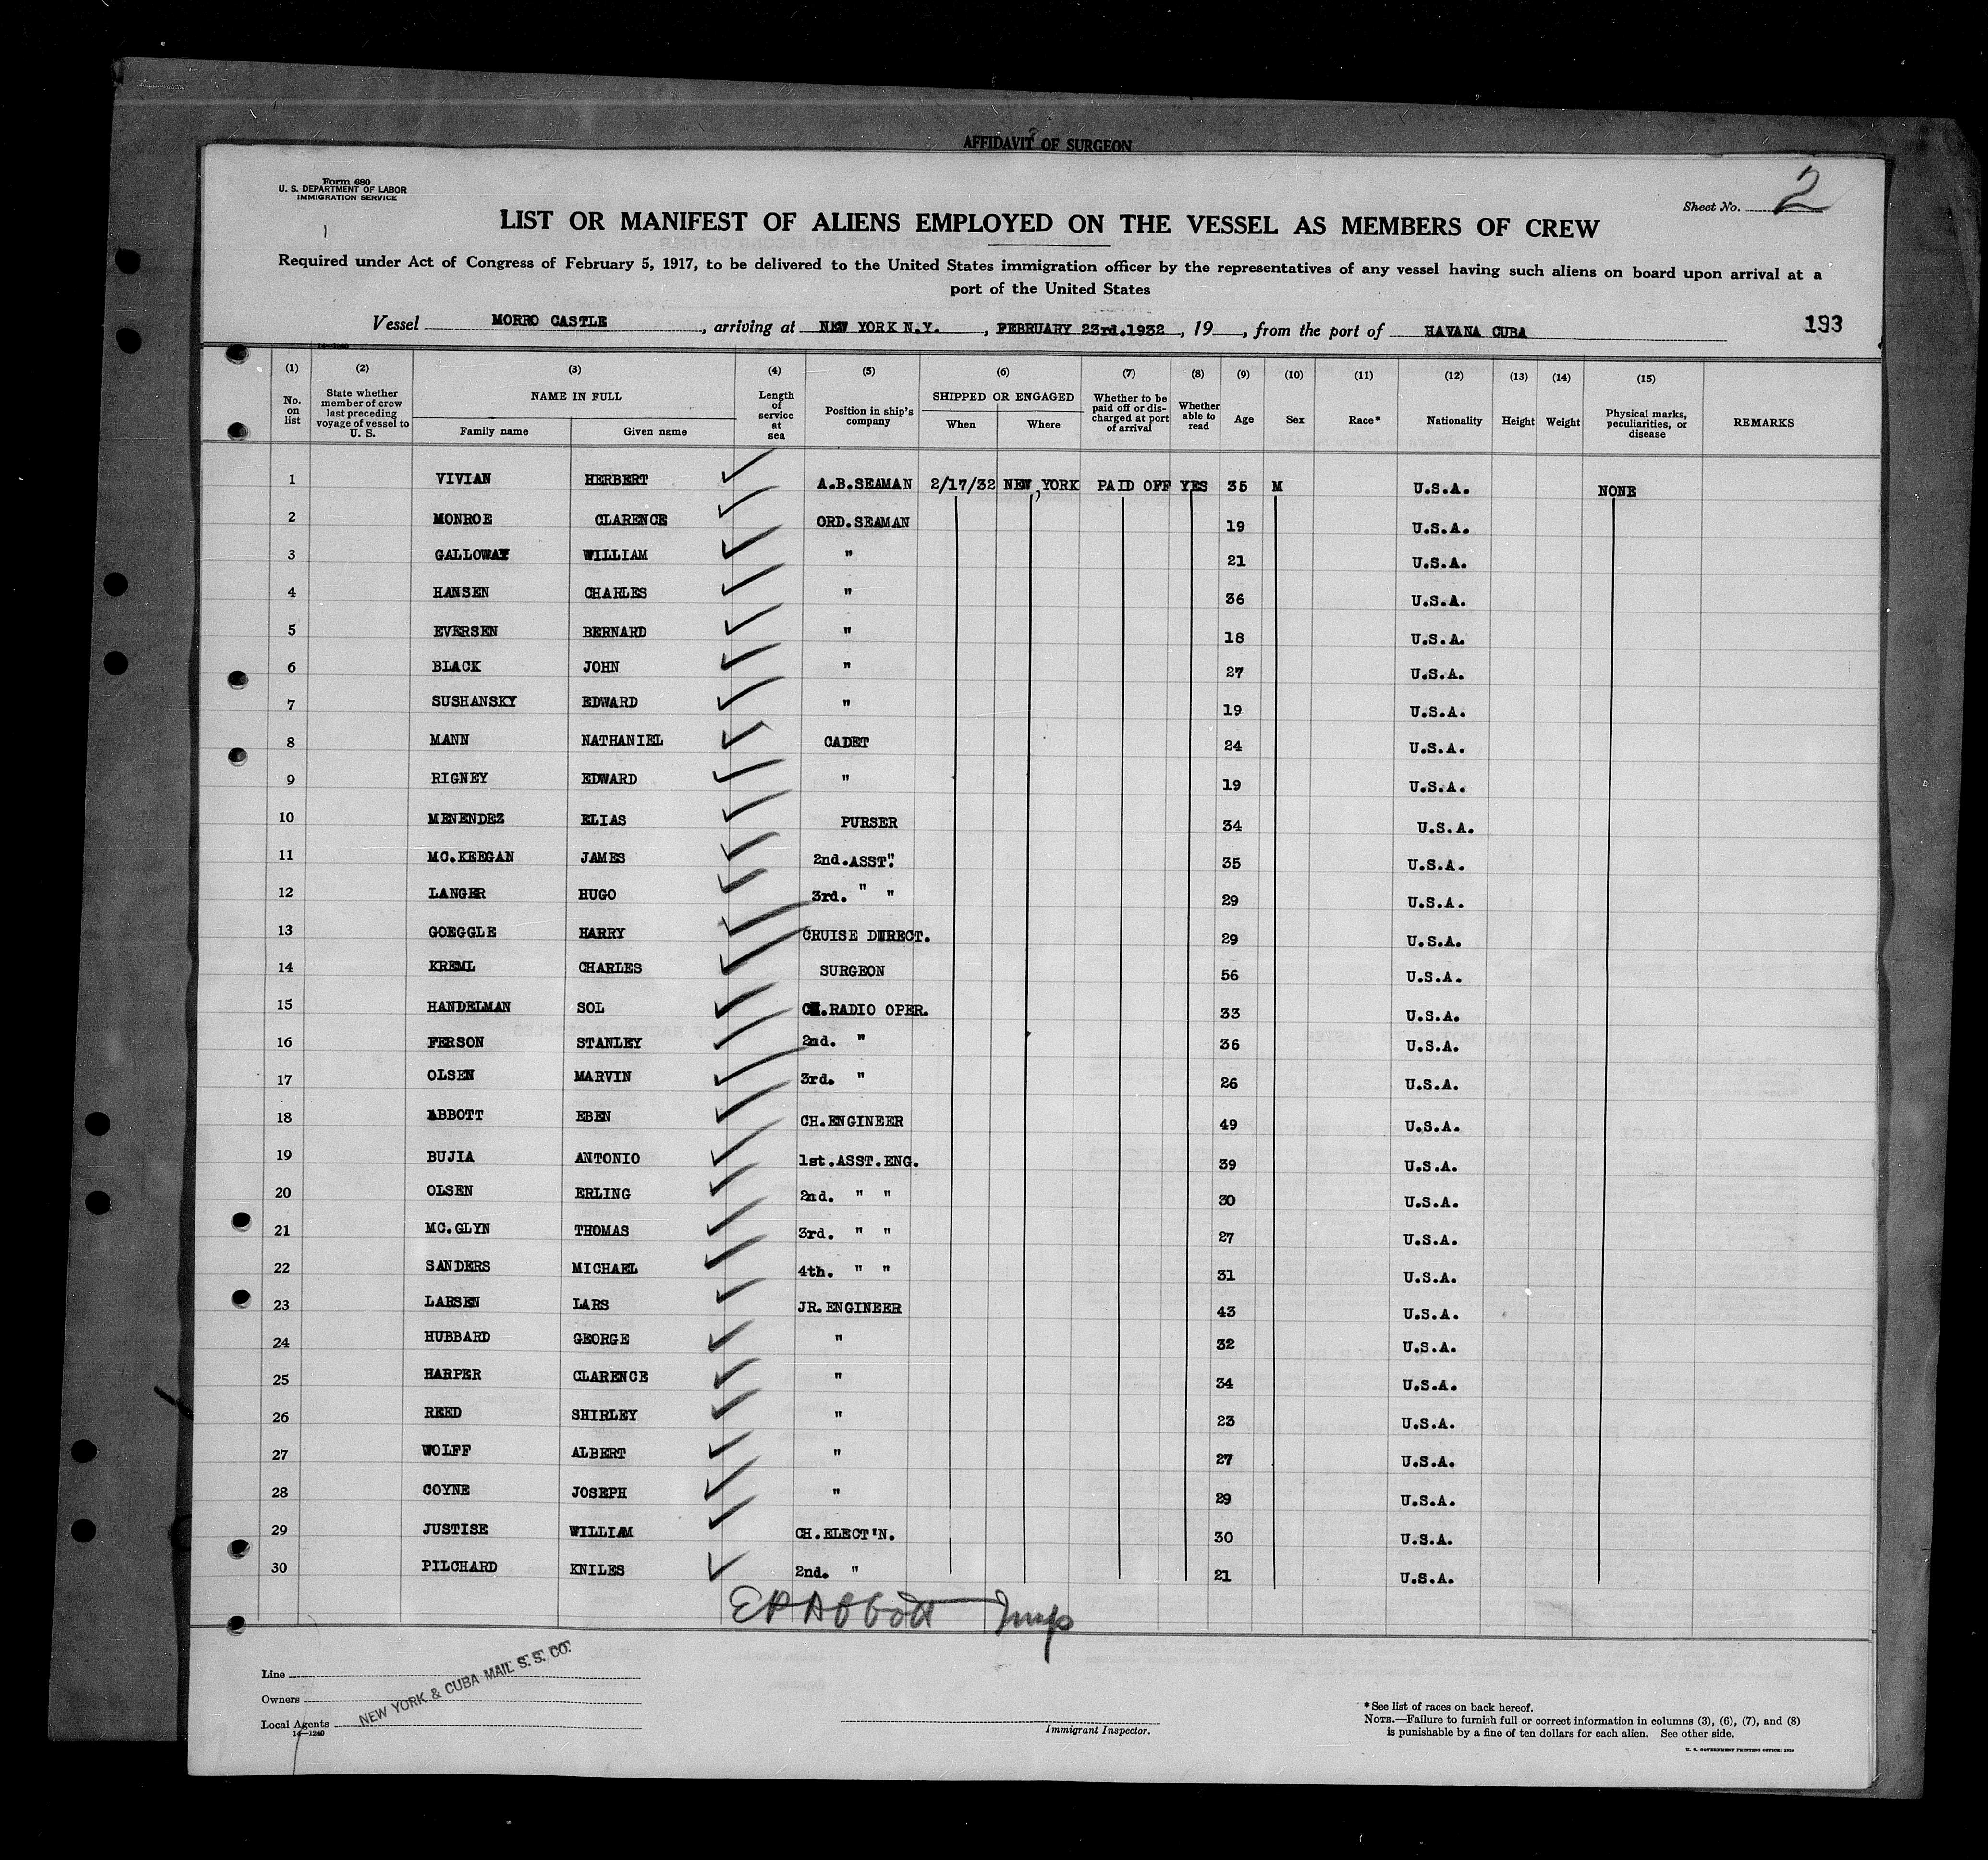 AFFIDAVIT OF SURGEON
Form 680
U. S. DEPARTMENT OF LABOR
IMMIGRATION SERVICE
Sheet No. 2
LIST OR MANIFEST OF ALIENS EMPLOYED ON THE VESSEL AS MEMBERS OF CREW
Required under Act of Congress of February 5, 1917, to be delivered to the United States immigration officer by the representatives of any vessel having such aliens on board upon arrival at a
port of the United States
Vessel MORRO CASTLE, arriving at NEW YORK N.Y., FEBRUARY 23rd.1932, 19, from the port of HAVANA CUBA 193
(1) (2) (3) (4) (5) (6) (7) (8) (9) (10) (11) (12) (13) (14) (15)
No. on list State whether member of crew last preceding voyage of vessel to U. S. NAME IN FULL Family name Given name Length of service at sea Position in ship's company SHIPPED OR ENGAGED When Where Whether to be paid off or discharged at port of arrival Whether able to read Age Sex Race* Nationality Height Weight Physical marks, peculiarities, or disease REMARKS
1 VIVIAN HERBERT A.B.SEAMAN 2/17/32 NEW YORK PAID OFF YES 35 M U.S.A. NONE
2 MONROE CLARENCE ORD.SEAMAN 19 U.S.A.
3 GALLOWAY WILLIAM " 21 U.S.A.
4 HANSEN CHARLES " 36 U.S.A.
5 EVERSEN BERNARD " 18 U.S.A.
6 BLACK JOHN " 27 U.S.A.
7 SUSHANSKY EDWARD " 19 U.S.A.
8 MANN NATHANIEL CADET 24 U.S.A.
9 RIGNEY EDWARD " 19 U.S.A.
10 MENENDEZ ELIAS PURSER 34 U.S.A.
11 MC.KEEGAN JAMES 2nd.ASST". 35 U.S.A.
12 LANGER HUGO 3rd. " " 29 U.S.A.
13 GOEGGLE HARRY CRUISE DIRECT. 29 U.S.A.
14 KREML CHARLES SURGEON 56 U.S.A.
15 HANDELMAN SOL CH.RADIO OPER. 33 U.S.A.
16 FERSON STANLEY 2nd. " 36 U.S.A.
17 OLSEN MARVIN 3rd. " 26 U.S.A.
18 ABBOTT EBEN CH.ENGINEER 49 U.S.A.
19 BUJIA ANTONIO 1st.ASST.ENG. 39 U.S.A.
20 OLSEN ERLING 2nd. " " 30 U.S.A.
21 MC.GLYN THOMAS 3rd. " " 27 U.S.A.
22 SANDERS MICHAEL 4th. " " 31 U.S.A.
23 LARSEN LARS JR.ENGINEER 43 U.S.A.
24 HUBBARD GEORGE " 32 U.S.A.
25 HARPER CLARENCE " 34 U.S.A.
26 REED SHIRLEY " 23 U.S.A.
27 WOLFF ALBERT " 27 U.S.A.
28 COYNE JOSEPH " 29 U.S.A.
29 JUSTISE WILLIAM CH.ELECT'N. 30 U.S.A.
30 PILCHARD KNILES 2nd. " 21 U.S.A.
Abbott Insp
Line
Owners
Local Agents
NEW YORK & CUBA MAIL S. S. CO.
14—1240
Immigrant Inspector.
*See list of races on back hereof.
NOTE.—Failure to furnish full or correct information in columns (3), (6), (7), and (8)
is punishable by a fine of ten dollars for each alien. See other side.